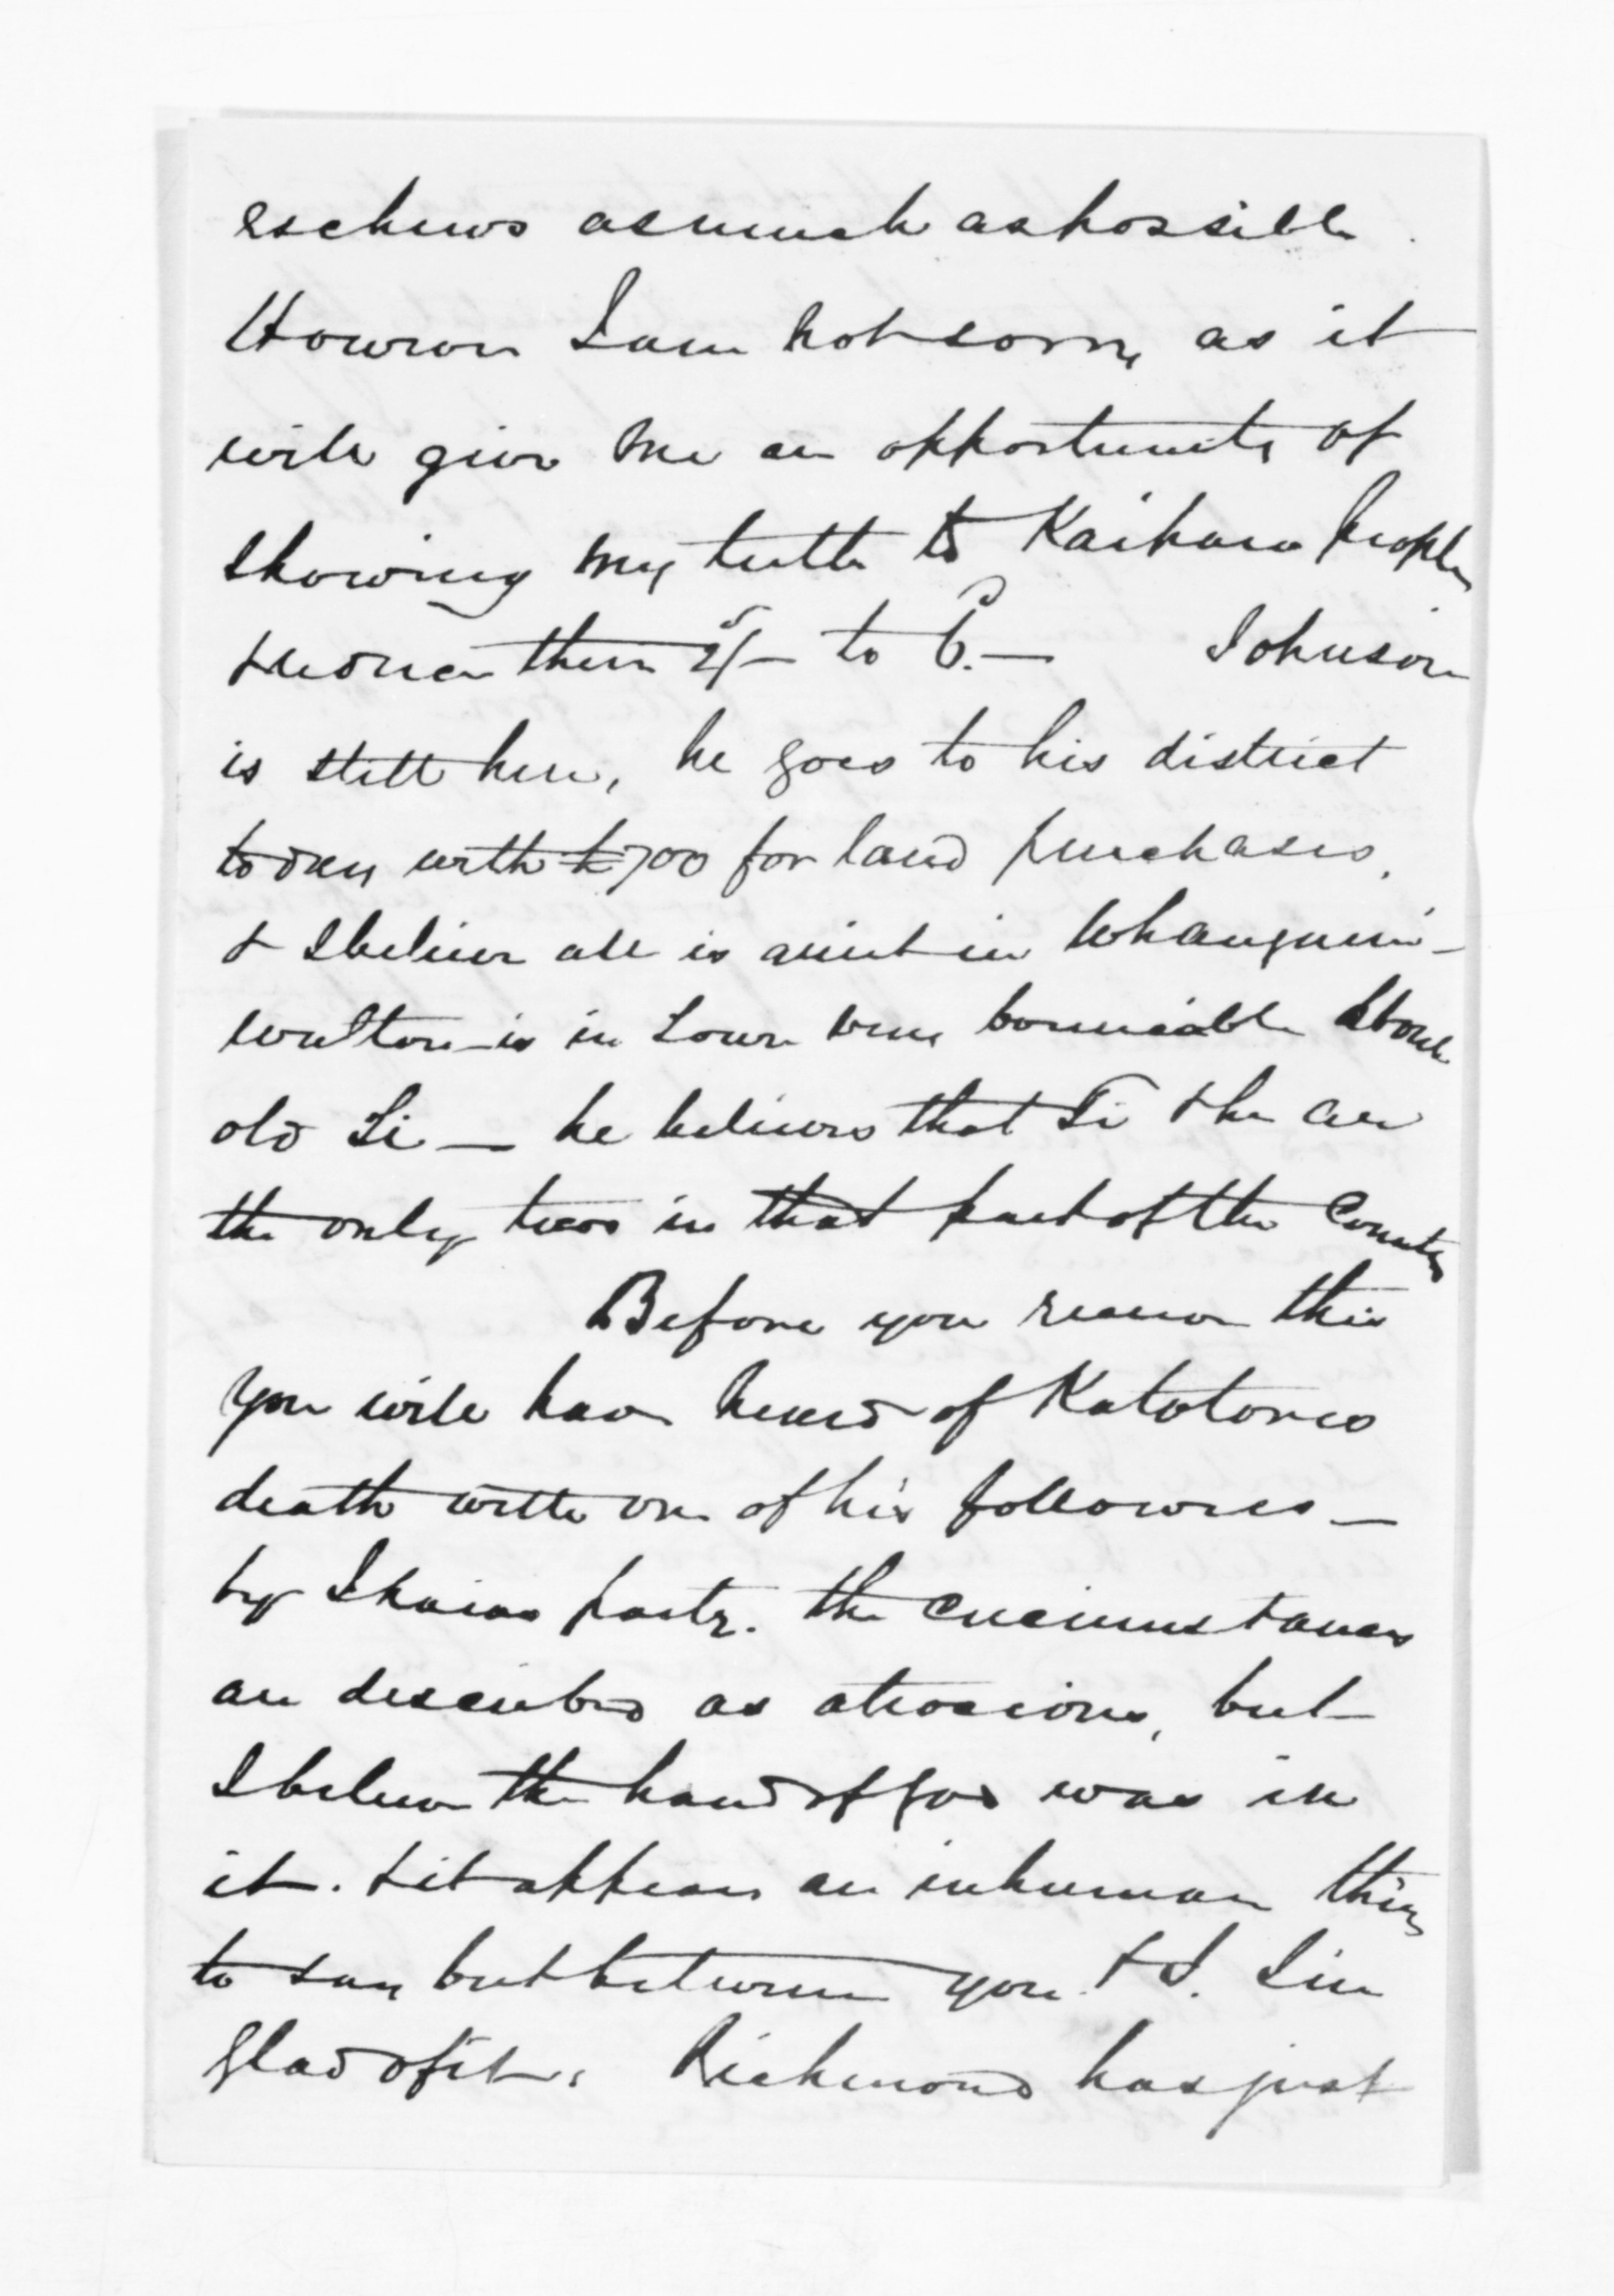 eschews as much as possible.
However I am not sorry as it
will give me an opportunity of
showing my teeth to Kaipara People
& money then 2/- to 6. — Johnson
is still here, he goes to his district
today with £700 for land purchases,
& I believe all is quiet in Whangarei -
Walton is in town very bounceable about
old Ti — he believes that Ti & he are
the only two in that part of the Country
Before you receive this
you will have heard of Katatores
death with one of his followers —
by Ihaias party. the circumstances
are described as atrocious, but
I believe the hand of God was in
it. & it appears an inhuman thing
to say but between you & I. I'm
glad of it. Richmond has just